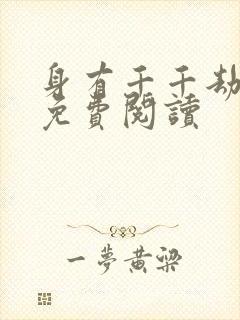 身有千千劫
免費閱讀
一夢黃梁